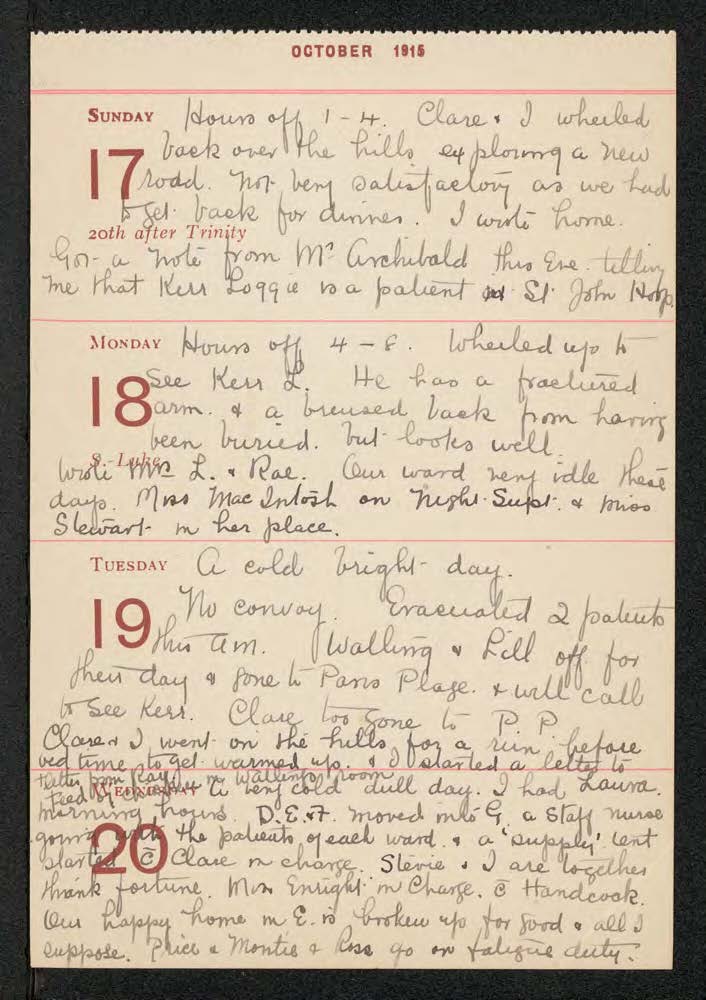 OCTOBER 1915
SUNDAY Hours off 1 - 4. Clare & I wheeled
17 back over the hills, exploring a new
road. Not very satisfactory as we had
to get back for dinner. I wrote home.
20th after Trinity
Got a note from Mr Archibald this Eve. telling
me that Kerr Loggie is a patient at St. John Hosp.
MONDAY Hours off 4 - 8. Wheeled up to
18 See Kerr L. He has a fractured
arm. & a breused back from having
been buried. but looks well.
S. Luke
Wrote Mrs L. & Rae. Our ward very idle these
days. Miss MacIntosh on Night Supt. & Miss
Stewart in her place.
TUESDAY A cold bright day.
19 No convoy. Evacuated 2 patients
this am. Walling & Lill off for
their day & gone to Paris Plage. & will call
to see Kerr. Clare too gone to P. P.
Clare & I went on the hills for a run before
bed time to get warmed up. & I started a letter to
letter from Ray. in Walling's room
Feed of
WEDNESDAY A very cold dull day. I had Laura.
20 morning hours. D. E. & F. moved into G. a Staff nurse
going with the patients of each ward. & a 'supply' tent
started c̄ Clare in charge. Stevie & I are together
thank fortune. Miss Enright in Charge. c̄ Handcock.
Our happy home in E. is broken up for good & all I
suppose. Price & Montie & Ross go on fatigue duty.